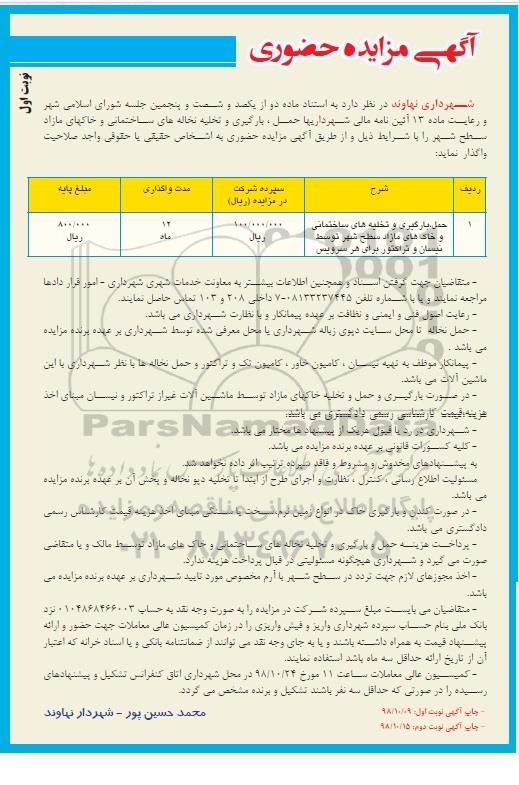 آگهی مزایده حضوری
نوبت اول
شهرداری نهاوند در نظر دارد به استناد ماده دو از یکصد و شصت و پنجمین جلسه شورای اسلامی شهر
و رعایت ماده ۱۳ آئین نامه مالی شهرداریها حمل ، بارگیری و تخلیه نخاله های ساختمانی و خاکهای مازاد
سطح شهر را با شرایط ذیل و از طریق آگهی مزایده حضوری به اشخاص حقیقی یا حقوقی واجد صلاحیت
واگذار نماید:
ردیف شرح سپرده شرکت در مزایده (ریال) مدت واگذاری مبلغ پایه
۱ حمل،بارگیری و تخلیه های ساختمانی ۱۰۰/۰۰۰/۰۰۰ ۱۲ ۸۰۰/۰۰۰
و خاک های مازاد سطح شهر توسط ریال ماه ریال
نیسان و تراکتور برای هر سرویس
- متقاضیان جهت گرفتن اسناد و همچنین اطلاعات بیشتر به معاونت خدمات شهری شهرداری - امور قرار دادها
مراجعه نمایند و یا با شماره تلفن ۰۸۱۳۳۲۳۷۴۴۵-۷ داخلی ۲۰۸ و ۱۰۳ تماس حاصل نمایند.
- رعایت اصول فنی و ایمنی و نظافت بر عهده پیمانکار و با نظارت شهرداری می باشد.
- حمل نخاله تا محل سایت دپوی زباله شهرداری یا محل معرفی شده توسط شهرداری بر عهده برنده مزایده
می باشد .
- پیمانکار موظف به تهیه نیسان ، کامیون خاور ، کامیون تک و تراکتور و حمل نخاله ها با نظر شهرداری با این
ماشین آلات می باشد.
- در صورت بارگیری و حمل و تخلیه خاکهای مازاد توسط ماشین آلات غیراز تراکتور و نیسان مبنای اخذ
هزینه،قیمت کارشناسی رسمی دادگستری می باشد.
- شهرداری در رد یا قبول هریک از پیشنهاد ها مختار می باشد.
- کلیه کسورات قانونی بر عهده برنده مزایده می باشد.
به پیشنهادهای مخدوش و مشروط و فاقد سپرده ترتیب اثر داده نخواهد شد.
مسئولیت اطلاع رسانی ، کنترل ، نظارت و اجرای طرح از ابتدا تا تخلیه دپو نخاله و پخش آن بر عهده برنده مزایده
می باشد.
- در صورت کندن و بارگیری خاک در انواع زمین نرم،سخت یا سنگی مبنای اخذ هزینه قیمت کارشناس رسمی
دادگستری می باشد.
- پرداخت هزینه حمل و بارگیری و تخلیه نخاله های ساختمانی و خاک های مازاد توسط مالک و یا متقاضی
صورت می گیرد و شهرداری هیچگونه مسئولیتی در قبال پرداخت هزینه ندارد.
- اخذ مجوزهای لازم جهت تردد در سطح شهر با آرم مخصوص مورد تایید شهرداری بر عهده برنده مزایده می
باشد.
- متقاضیان می بایست مبلغ سپرده شرکت در مزایده را به صورت وجه نقد به حساب ۰۱۰۴۸۶۸۴۶۶۰۰۳ نزد
بانک ملی بنام حساب سپرده شهرداری واریز و فیش واریزی را در زمان کمیسیون عالی معاملات جهت حضور و ارائه
پیشنهاد قیمت به همراه داشته باشند و یا به جای وجه نقد می توانند از ضمانتنامه بانکی و یا اسناد خزانه که اعتبار
آن از تاریخ ارائه حداقل سه ماه باشد استفاده نمایند.
- کمیسیون عالی معاملات ساعت ۱۱ مورخ ۹۸/۱۰/۲۴ در محل شهرداری اتاق کنفرانس تشکیل و پیشنهادهای
رسیده را در صورتی که حداقل سه نفر باشند تشکیل و برنده مشخص می گردد.
- چاپ آگهی نوبت اول: ۹۸/۱۰/۰۹
- چاپ آگهی نوبت دوم: ۹۸/۱۰/۱۵
محمد حسین پور - شهردار نهاوند
ParsNamadData
پایگاه اطلاع رسانی مناقصه و مزایده
۰۲۱-۸۸۳۴۹۶۷۰